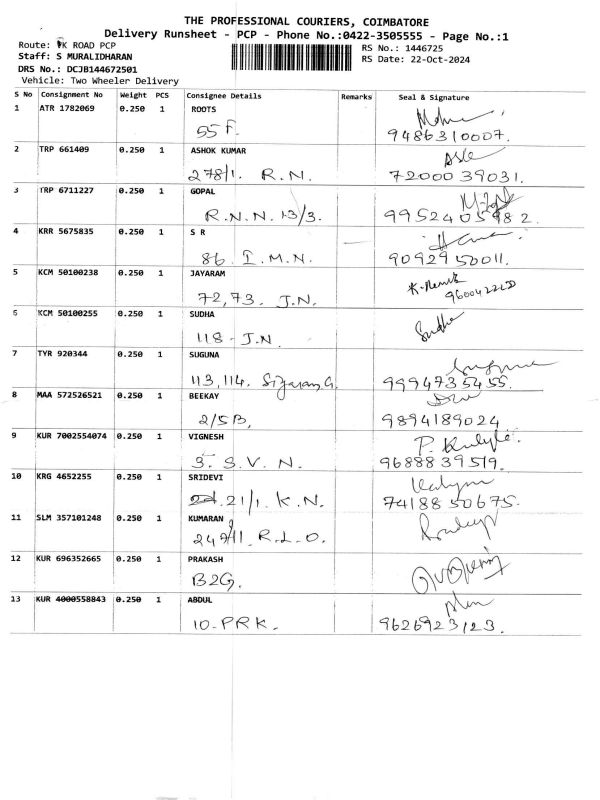 THE PROFESSIONAL COURIERS, COIMBATORE
Delivery Runsheet - PCP - Phone No.:0422-3505555 - Page No.:1
Route: PK ROAD PCP RS No.: 1446725
Staff: S MURALIDHARAN RS Date: 22-Oct-2024
DRS No.: DCJB144672501
Vehicle: Two Wheeler Delivery
S No Consignment No Weight PCS Consignee Details Remarks Seal & Signature
1 ATR 1782069 0.250 1 ROOTS
55 F. 9486310007.
2 TRP 661409 0.250 1 ASHOK KUMAR
278/1. R.N. 7200039031.
3 TRP 6711227 0.250 1 GOPAL
R.N.N. 13/3. 9952405982.
4 KRR 5675835 0.250 1 S R
86. I.M.N. 9092950011.
5 KCM 50100238 0.250 1 JAYARAM
72,73. J.N.
6 KCM 50100255 0.250 1 SUDHA
118 - J.N. Sudha
7 TYR 920344 0.250 1 SUGUNA
113,114. 9994735455.
8 MAA 572526521 0.250 1 BEEKAY
2/5B, 9894189024.
9 KUR 7002554074 0.250 1 VIGNESH
3. S.V.N. 9688839519.
10 KRG 4652255 0.250 1 SRIDEVI
21/1. K.N. 7418850675.
11 SLM 357101248 0.250 1 KUMARAN
R.L.O.
12 KUR 696352665 0.250 1 PRAKASH
B2G.
13 KUR 4000558843 0.250 1 ABDUL
10-PRK. 9626923123.